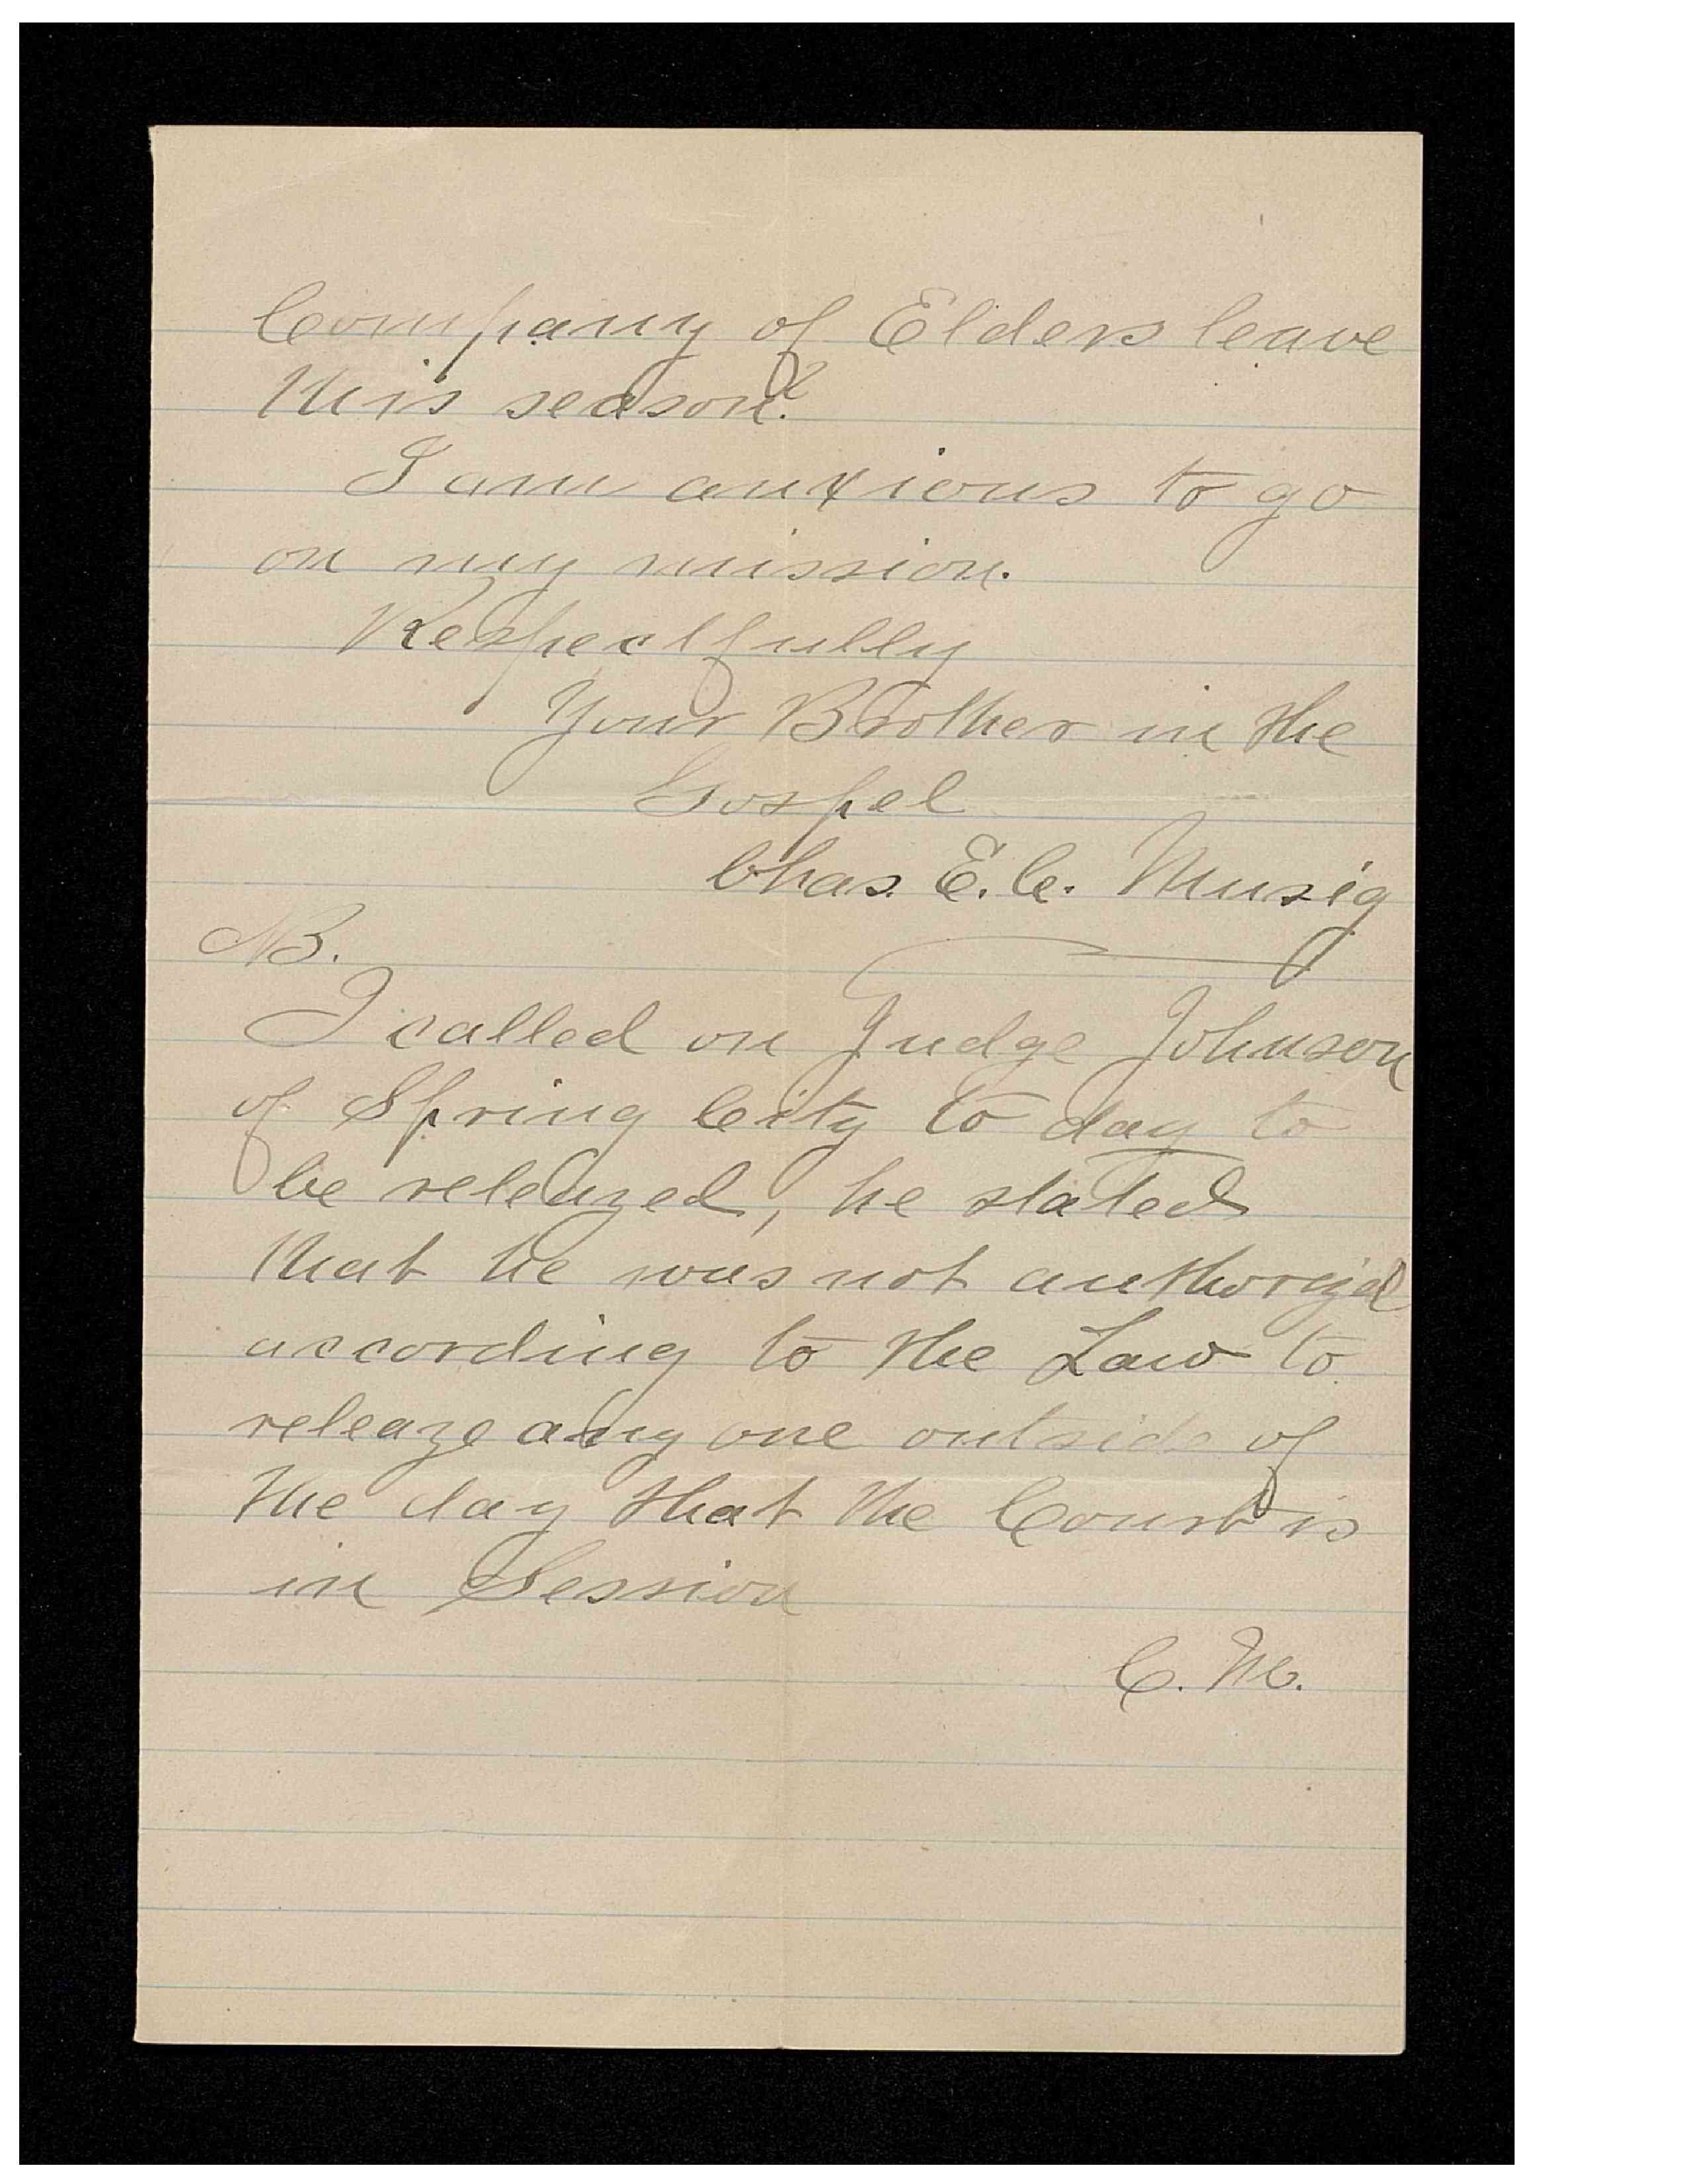 Company of Elders leave
this season?
I am anxious to go
on my mission.
Respectfully
Your Brother in the
Gospel
Chas. E. C. Musig
NB.
I called on Judge Johnson
of Spring City to day to
be releazed, he stated
that he was not authorized
according to the Law to
releaze any one outside of
the day that the Court is
in Session
C. M.